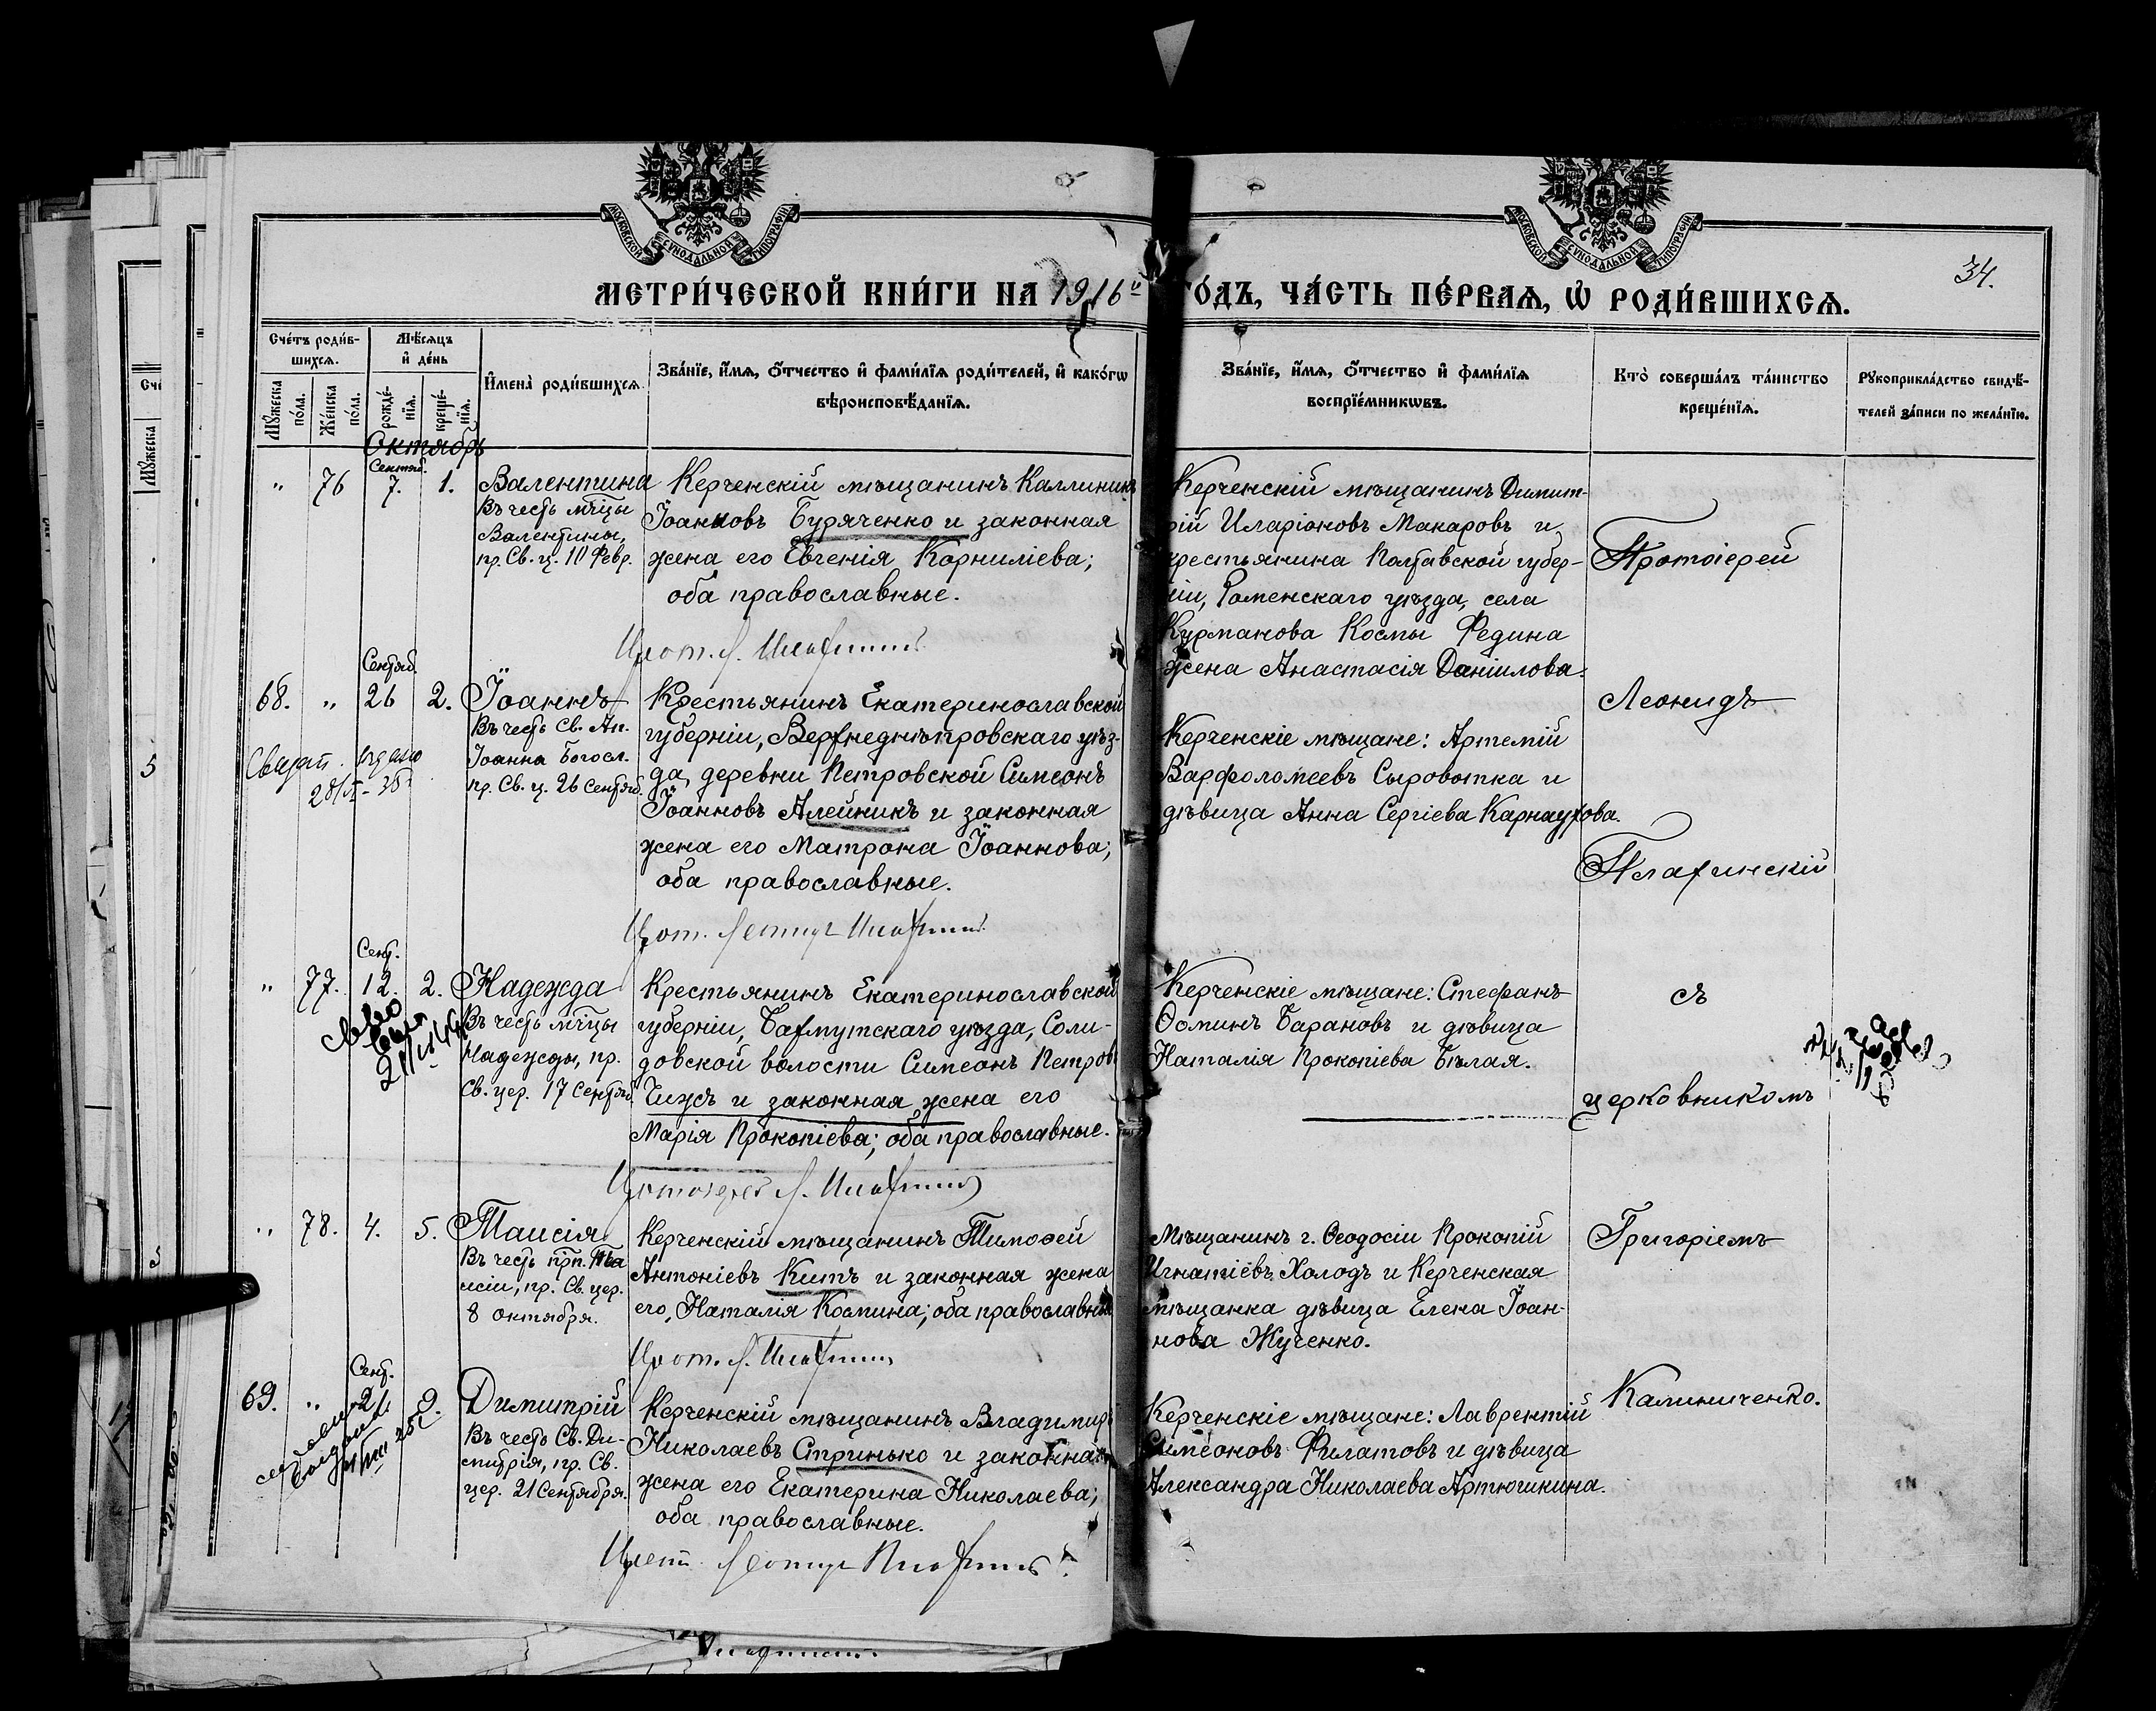 МОСКОВСКОЙ СУНОДАЛЬНОЙ ТИПОГРАФІИ
МОСКОВСКОЙ СУНОДАЛЬНОЙ ТИПОГРАФІИ
34.
МЕТРИ́ЧЕСКОЙ КНИ́ГИ НА 1916й ГО́ДЪ, ЧА́СТЬ ПЕ́РВАѦ, Ѡ҆ РОДИ́ВШИХСѦ.
Сче́тъ роди́в-
шихсѧ.
Мꙋ́жеска
по́ла.
Же́нска
по́ла.
Мѣ́сѧцъ
и҆ де́нь
рожде́-
нїѧ.
креще́-
нїѧ.
И҆мена̀ роди́вшихсѧ.
Зва́нїе, и҆́мѧ, ѻ҆́тчество и҆ фами́лїѧ роди́телей, и҆ како́гѡ
вѣроисповѣ́данїѧ.
Зва́нїе, и҆́мѧ, ѻ҆́тчество и҆ фами́лїѧ
воспрїе́мникѡвъ.
Кто̀ соверша́лъ та́инство
креще́нїѧ.
Рꙋкоприкла́дство свидѣ́-
телей за́писи по жела́нїю.
Октябрь
" 76 Сентяб. 7. 1.
Валентина
Въ честь мч҃цы
Валентины,
пр. Св. ц. 10 Февр.
Керченскій мѣщанинъ Каллиникъ
Іоанновъ Буряченко и законная
жена его Евгенія Корниліева;
оба православные.
Керченскій мѣщанинъ Димит-
рій Иларіоновъ Макаровъ и
крестьянина Полтавской губер-
ніи, Роменскаго уѣзда, села
Курманова Космы Федина
жена Анастасія Даніилова.
Протоіерей
68. " Сентяб. 26 2.
Іоаннъ
Въ честь Св. Ап.
Іоанна Богосл.
пр. Св. ц. 26 Сентяб.
Крестьянинъ Екатеринославской
губерніи, Верхнеднѣпровскаго уѣз-
да, деревни Петровской Симеонъ
Іоанновъ Алейникъ и законная
жена его Матрона Іоаннова;
оба православные.
Керченскіе мѣщане: Артемій
Варфоломеевъ Сыровотка и
дѣвица Анна Сергіева Карнаухова.
Леонидъ
Плахинскій
" 77. Сент. 12. 2.
Надежда
Въ честь мч҃цы
Надежды, пр.
Св. цер. 17 Сентяб.
Крестьянинъ Екатеринославской
губерніи, Бахмутскаго уѣзда, Соли-
довской волости Симеонъ Петровъ
Чижъ и законная жена его
Марія Прокопіева; оба православные.
Керченскіе мѣщане: Стефанъ
Ѳоминъ Барановъ и дѣвица
Наталія Прокопіева Бѣлая.
съ
церковникомъ
" 78. 4. 5.
Таисія
Въ честь прп. Та-
исіи, пр. Св. цер.
8 октября.
Керченскій мѣщанинъ Тимоѳей
Антоніевъ Китъ и законная жена
его, Наталія Космина; оба православные
Мѣщанинъ г. Ѳеодосіи Прокопій
Игнатіевъ Холодъ и Керченская
мѣщанка дѣвица Елена Іоан-
нова Жученко.
Григоріемъ
69. " Сент. 21. 9.
Димитрій
Въ честь Св. Ди-
митрія, пр. Св.
цер. 21 Сентября.
Керченскій мѣщанинъ Владимиръ
Николаевъ Стринько и законная
жена его Екатерина Николаева;
оба православные.
Керченскіе мѣщане: Лаврентій
Симеоновъ Филатовъ и дѣвица
Александра Николаева Артюшкина.
Калиниченко.